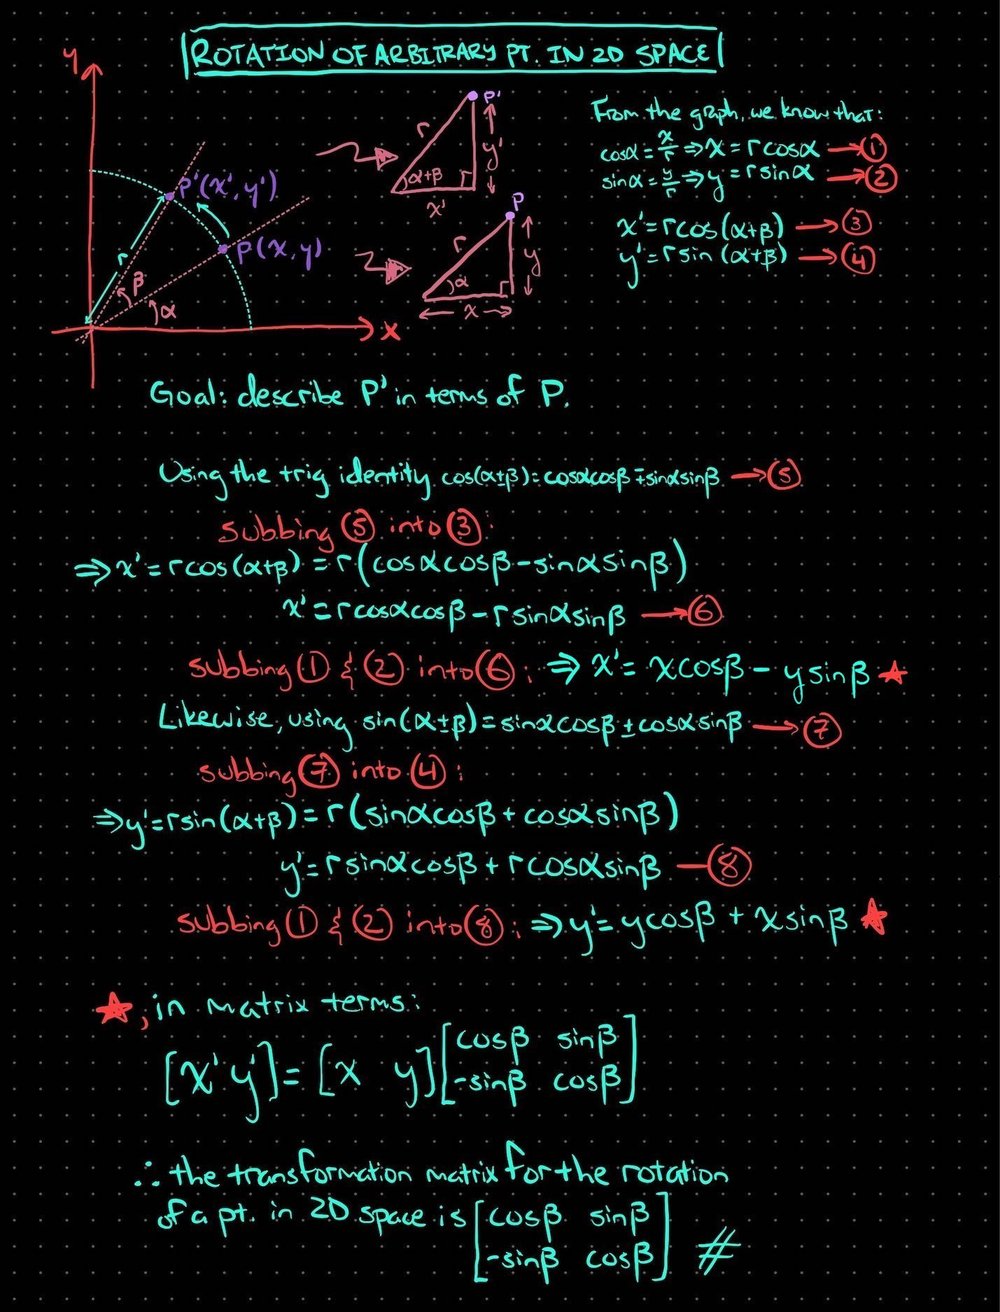 ROTATION OF ARBITRARY PT. IN 2D SPACE
y
P'
r
y'
α+β
x'
From the graph, we know that:
cosα = x/r ⇒ x = rcosα → ①
sinα = y/r ⇒ y = rsinα → ②
x' = rcos(α+β) → ③
y' = rsin(α+β) → ④
P'(x', y')
P(x, y)
r
β
α
x
P
r
y
α
x
Goal: describe P' in terms of P.
Using the trig identity cos(α±β) = cosαcosβ ∓ sinαsinβ → ⑤
subbing ⑤ into ③:
⇒ x' = rcos(α+β) = r(cosαcosβ - sinαsinβ)
x' = rcosαcosβ - rsinαsinβ → ⑥
subbing ① & ② into ⑥: ⇒ x' = xcosβ - ysinβ ★
Likewise, using sin(α±β) = sinαcosβ ± cosαsinβ → ⑦
subbing ⑦ into ④:
⇒ y' = rsin(α+β) = r(sinαcosβ + cosαsinβ)
y' = rsinαcosβ + rcosαsinβ — ⑧
subbing ① & ② into ⑧: ⇒ y' = ycosβ + xsinβ ★
★, in matrix terms:
[x' y'] = [x y] [cosβ sinβ
-sinβ cosβ]
∴ the transformation matrix for the rotation
of a pt. in 2D space is [cosβ sinβ
-sinβ cosβ] #